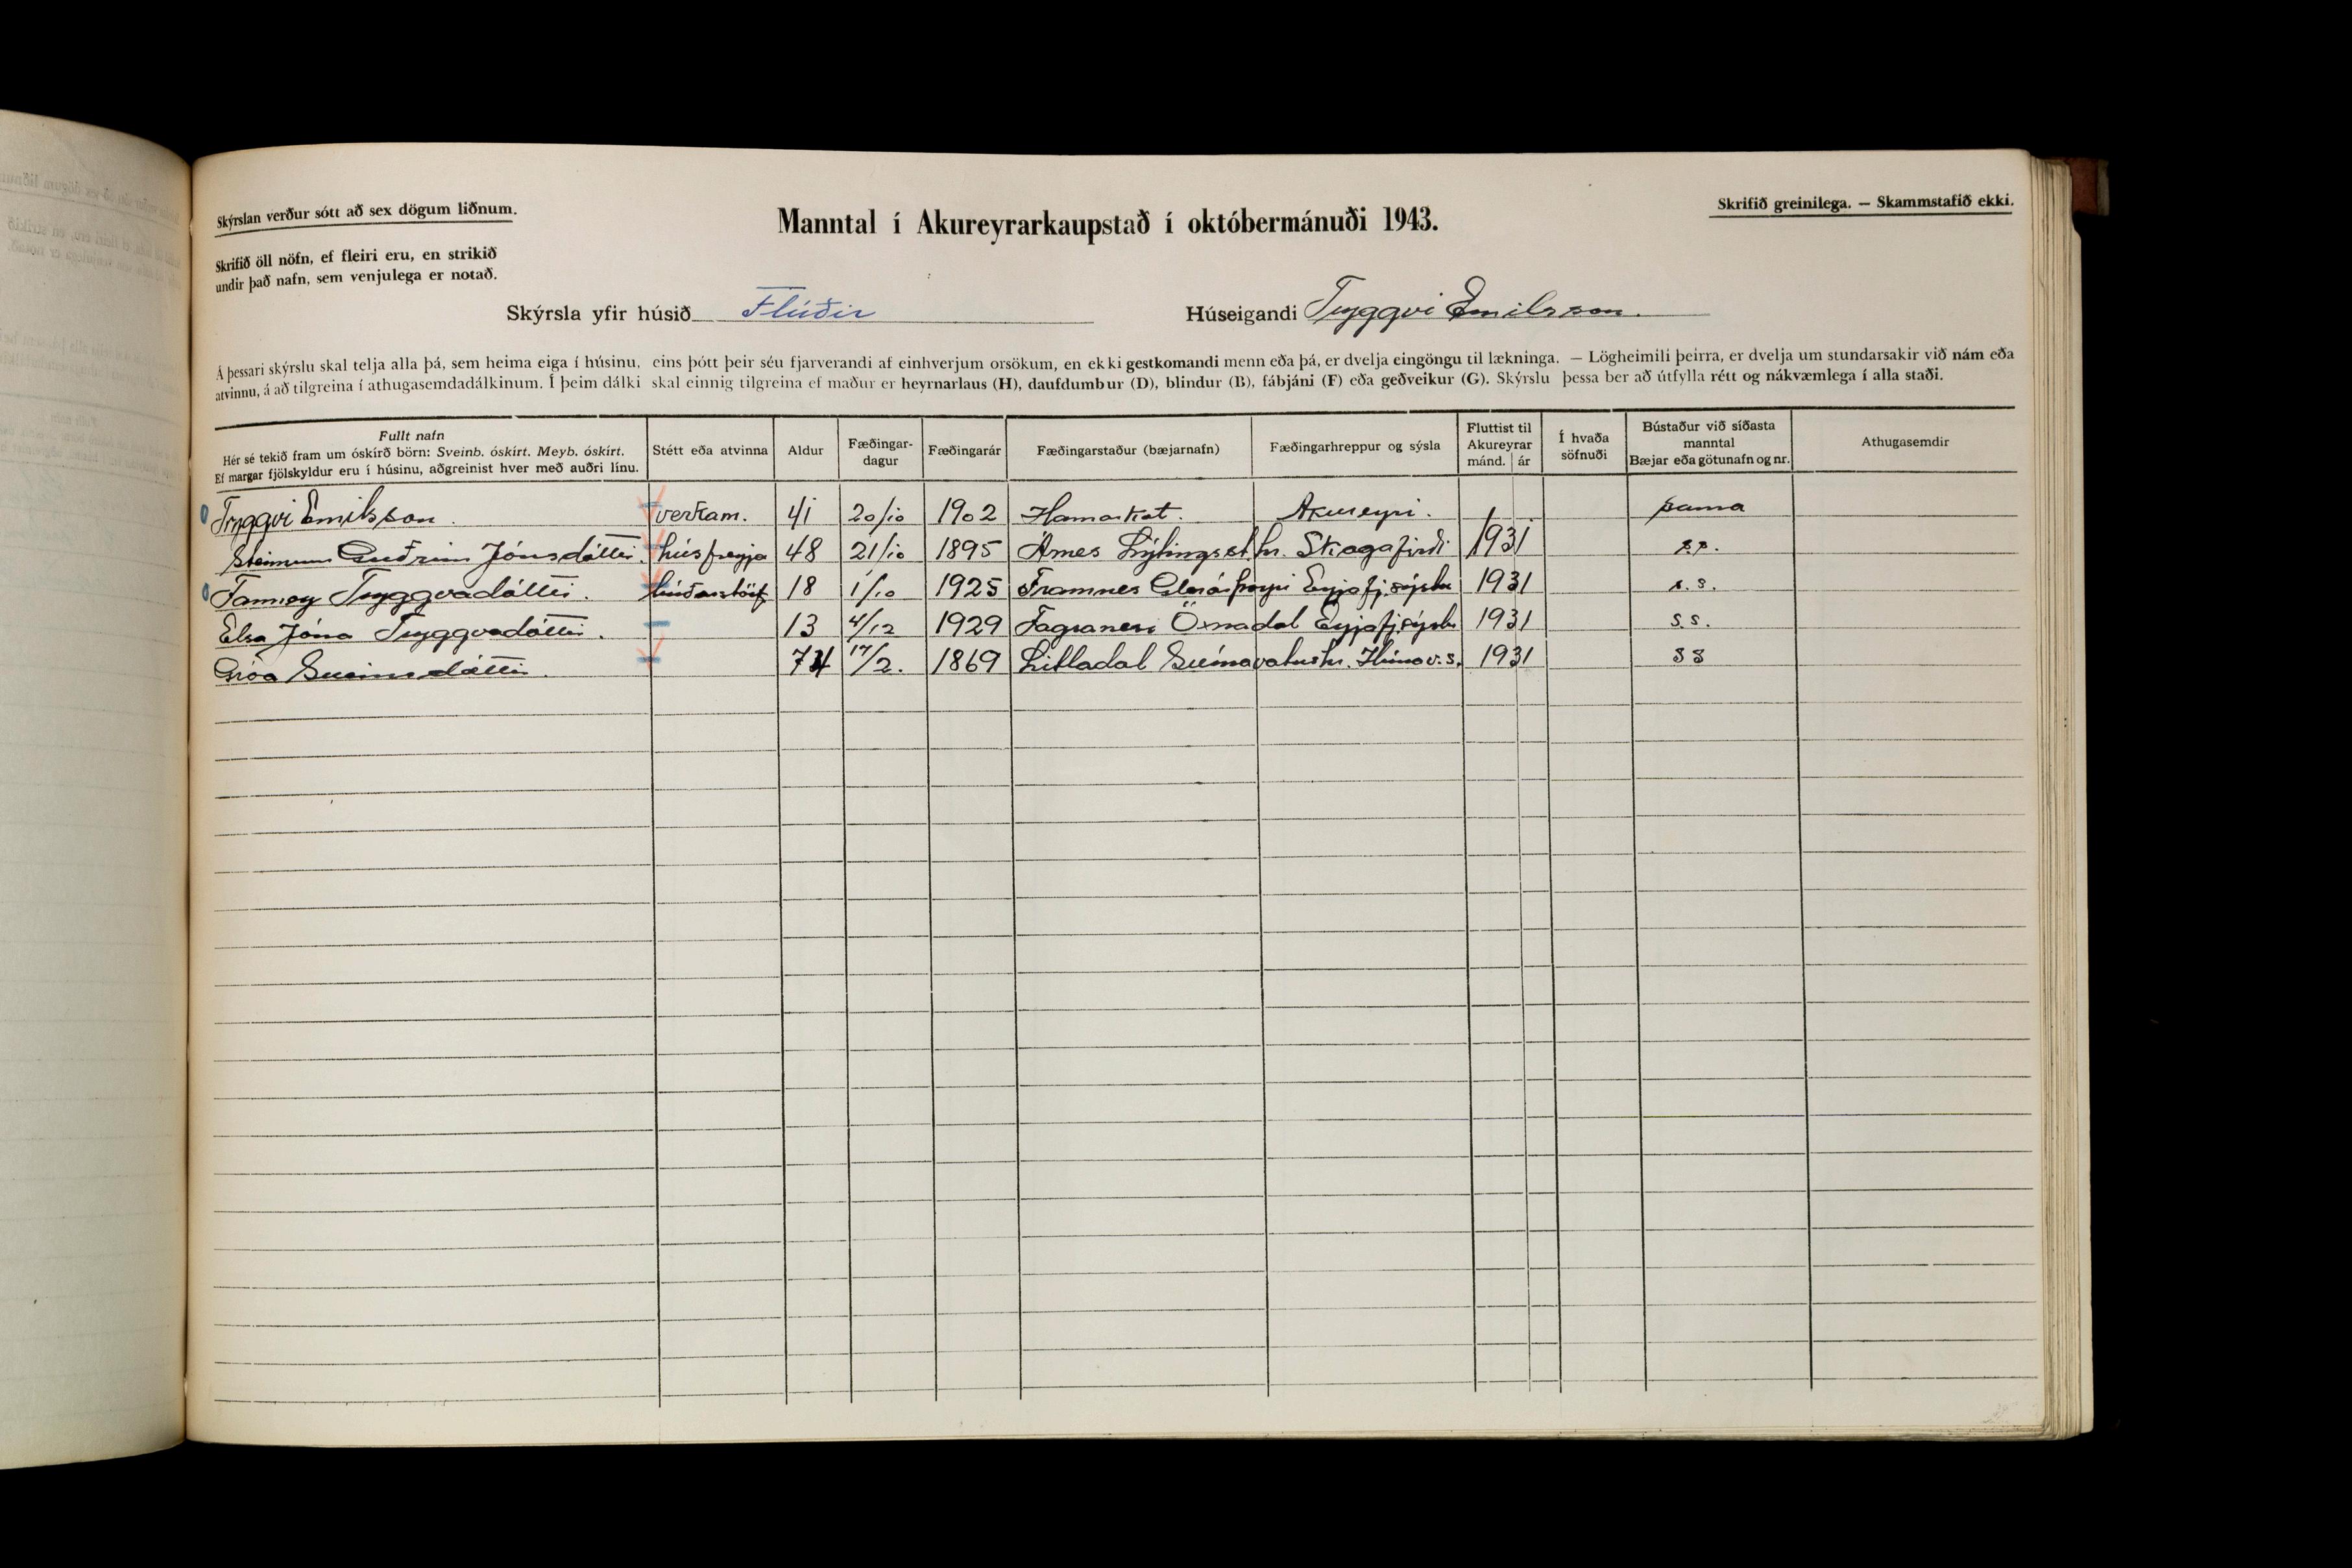 Skýrslan verður sótt að sex dögum liðnum.
Manntal í Akureyrarkaupstað í októbermánuði 1943.
Skrifið greinilega. — Skammstafið ekki.
Skrifið öll nöfn, ef fleiri eru, en strikið
undir það nafn, sem venjulega er notað.
Skýrsla yfir húsið Flúðir Húseigandi Tryggvi Emilsson.
Á þessari skýrslu skal telja alla þá, sem heima eiga í húsinu, eins þótt þeir séu fjarverandi af einhverjum orsökum, en ekki gestkomandi menn eða þá, er dvelja eingöngu til lækninga. — Lögheimili þeirra, er dvelja um stundarsakir við nám eða
atvinnu, á að tilgreina í athugasemdadálkinum. Í þeim dálki skal einnig tilgreina ef maður er heyrnarlaus (H), daufdumbur (D), blindur (B), fábjáni (F) eða geðveikur (G). Skýrslu þessa ber að útfylla rétt og nákvæmlega í alla staði.
Fullt nafn
Hér sé tekið fram um óskírð börn: Sveinb. óskírt. Meyb. óskírt.
Ef margar fjölskyldur eru í húsinu, aðgreinist hver með auðri línu.
Stétt eða atvinna
Aldur
Fæðingar-
dagur
Fæðingarár
Fæðingarstaður (bæjarnafn)
Fæðingarhreppur og sýsla
Fluttist til
Akureyrar
mánd. ár
Í hvaða
söfnuði
Bústaður við síðasta
manntal
Bæjar eða götunafn og nr.
Athugasemdir
Tryggvi Emilsson verkam. 41 20/10 1902 Hamarkot. Akureyri. sama
Steinunn Guðrún Jónsdóttir. húsfreyja 48 21/10 1895 Árnes Lýtingsst.hr. Skagafirði 1931 s.s.
Fanney Tryggvadóttir. búðarstörf 18 1/10 1925 Framnes Glerárþorpi Eyjafj.sýslu 1931 s.s.
Elsa Jóna Tryggvadóttir. 13 4/12 1929 Fagranesi Öxnadal Eyjafj.sýslu 1931 s.s.
Gróa Sveinsdóttir. 74 17/2. 1869 Litladal Svínavatnshr. Húnav.s. 1931 ss